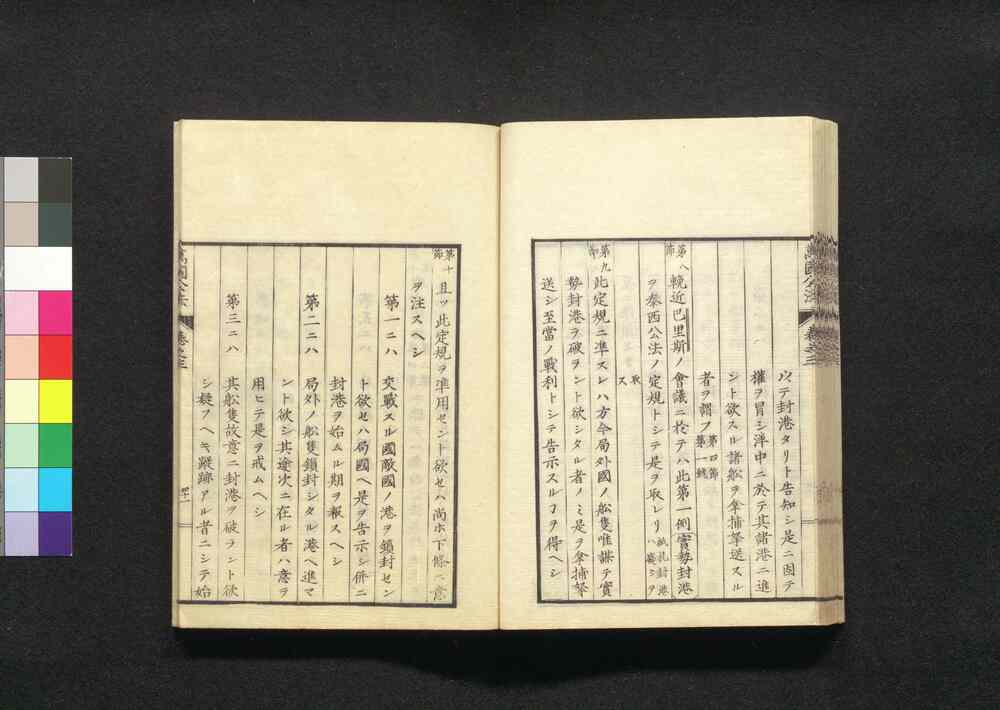 以テ封港タリト告知シ是ニ因テ
權ヲ冒シ洋中ニ於テ其諸港ニ進
ント欲スル諸舩ヲ拿捕拏送スル
者ヲ謂フ第四節第一號
第八節 輓近巴里斯ノ會議ニ於テハ此第一例實勢封港
ヲ泰西公法ノ定規トシテ是ヲ取レリ紙札封港ハ癈シヲ
取ス
第九節 此定規ニ準スレハ方今局外國ノ舩隻唯謀テ實
勢封港ヲ破ヲント欲シタル者ノミ是ヲ拿捕拏
送シ至當ノ戰利トシテ告示スルヿヲ得ヘシ
萬國公法 卷之三
第十節 且ツ此定規ヲ準用セント欲セハ尚ホ下條ニ意
ヲ注スヘシ
第一ニハ 交戰スル國敵國ノ港ヲ鎖封セン
ト欲セハ局國ヘ是ヲ告示シ併ニ
封港ヲ始ムル期ヲ報スヘシ
第二ニハ 局外ノ舩隻鎖封シタル港ヘ進マ
ント欲シ其途次ニ在ル者ハ意ヲ
用ヒテ是ヲ戒ムヘシ
第三ニハ 其舩隻故意ニ封港ヲ破ラント欲
シ疑フヘキ蹤跡アル者ニシテ始
萬國公法 卷之三